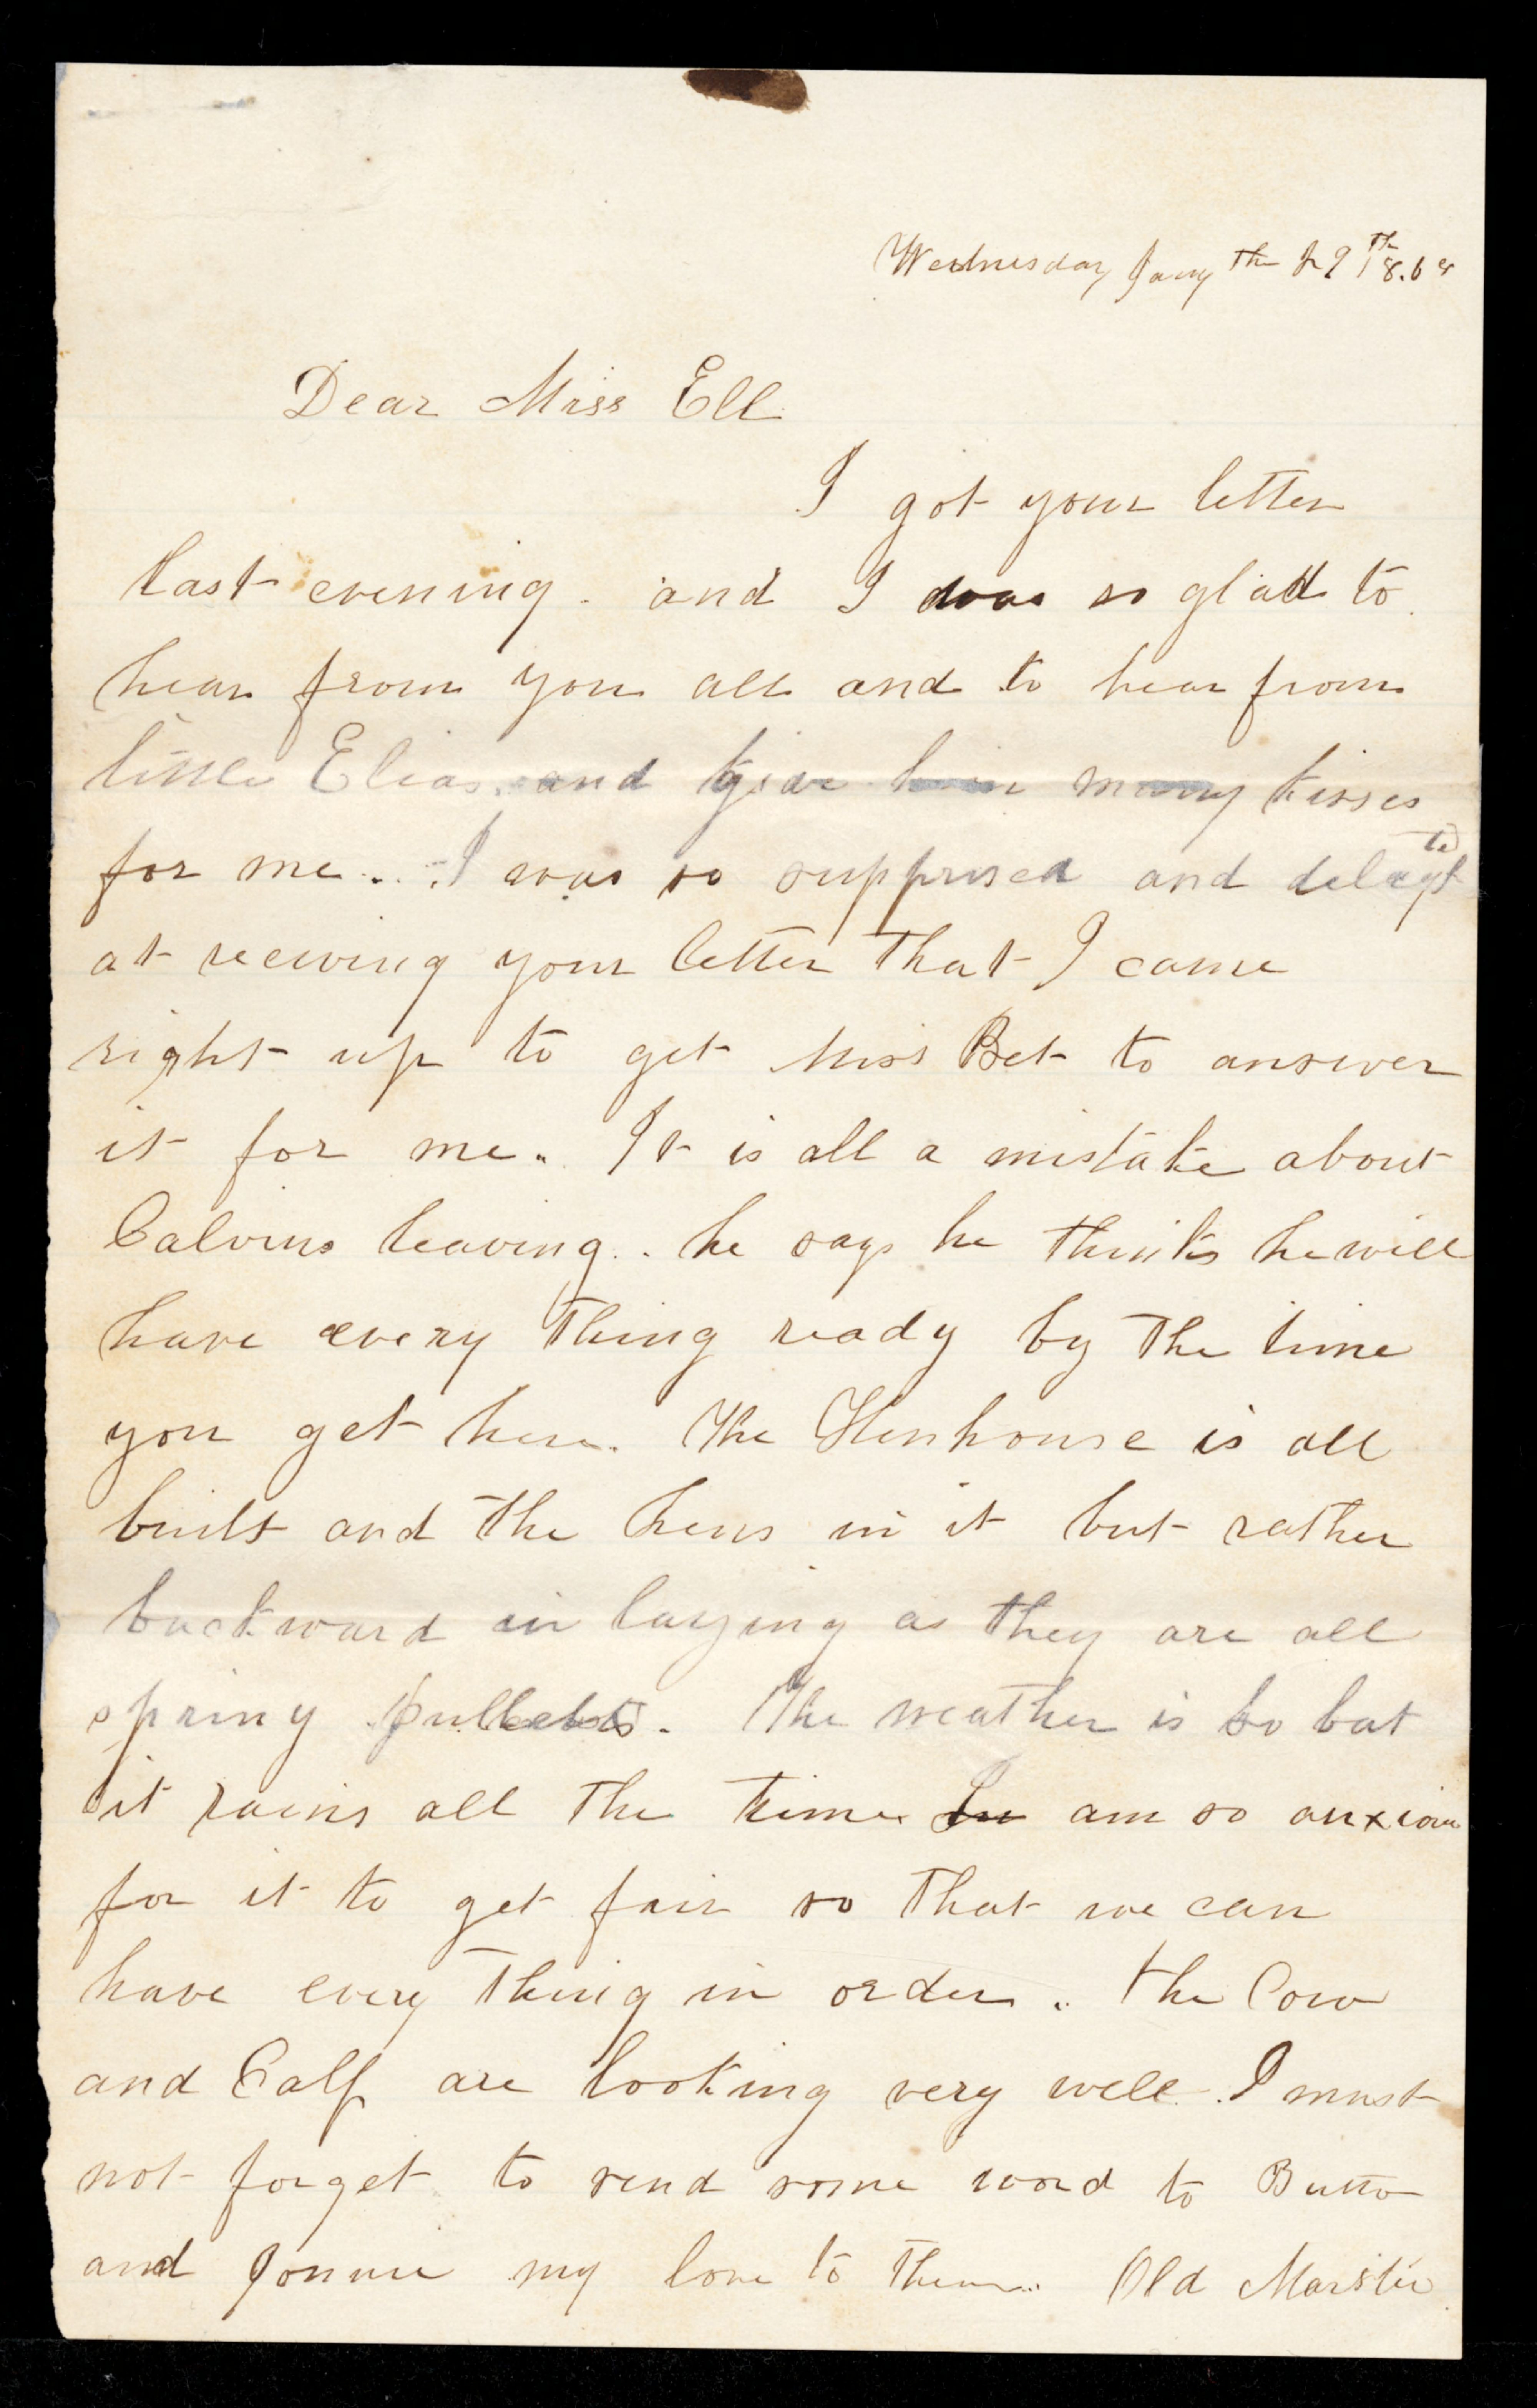 Wednesday Jany the 29th 1868
Dear Miss Ell
I got your letter
last evening. and I was so glad to
hear from you all and to hear from
little Elias. and give him many kisses
for me. I was so supprised and delagted
at receving your letter that I came
right up to get Miss Bet to answer
it for me. It is all a mistake about
Calvins leaving. he says he thinks he will
have every thing ready by the time
you get here. The Henhouse is all
built and the hens in it but rather
backward in laying as they are all
spring pullets. The weather is so bat
it rains all the time I am so anxious
for it to get fair so that we can
have every thing in order. the Cow
and Calf are looking very well. I must
not forget to send some word to Butto
and Jonnie my love to them. Old Marster